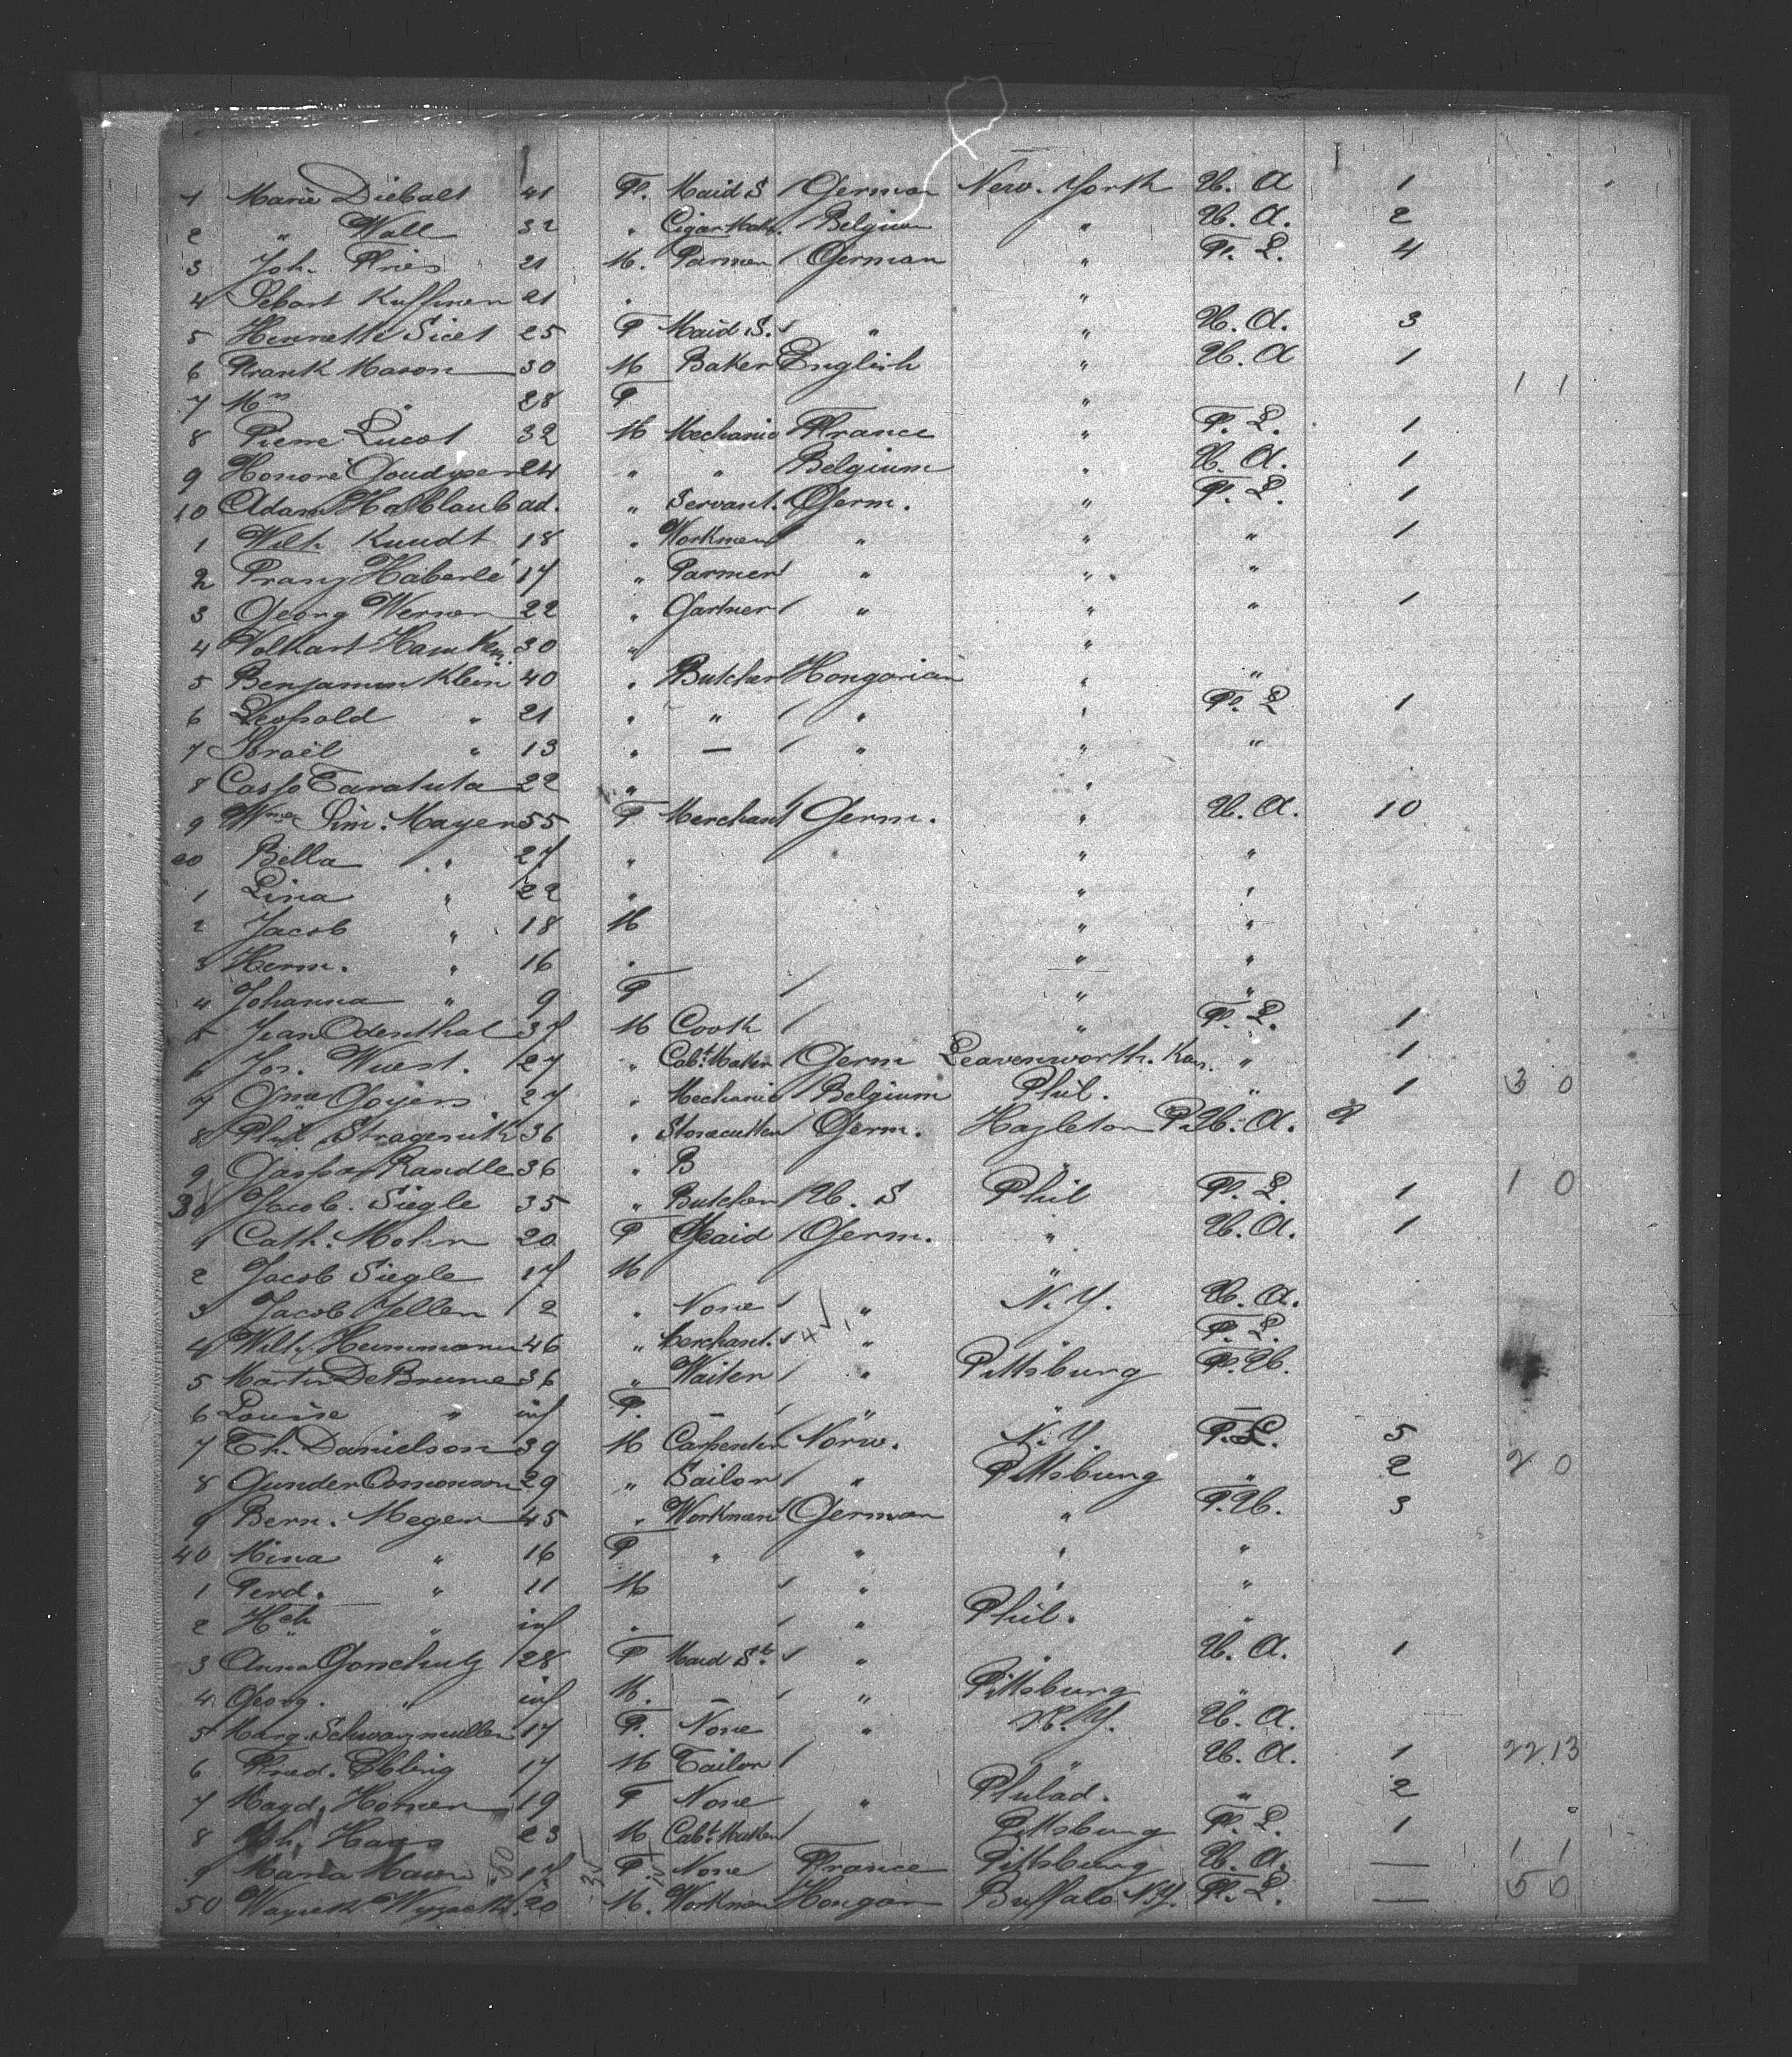 1 Marie Diebalt 41 F. Maid S / German New. York U. A 1
2 " Wall 32 " Cigar Mak. Belgium " U. A. 2
3 Joh. Fries 21 M. Farmer / German " F. L. 4
4 Sebast Kuffman 21 " "
5 Hennette Sicet 25 F Maid S. / " " U. A. 3
6 Frank Mason 30 M Baker English " U. A 1
7 Mrs " 28 F " 1 1
8 Pierre Lucot 32 M Mechanic France " F. L. 1
9 Honoré 24 " " Belgium " U. A. 1
10 Adam ad. " Servant. Germ. " F. L. 1
1 Wilh. Kundt 18 " Workmen " " " 1
2 Franz Häberle 17 " Farmer " " "
3 Georg Werner 22 " Gartner / " " " 1
4 Volkart 30 " "
5 Benjamin Klein 40 " Butcher Hongarian " "
6 Leopold " 21 " " / " " F. L 1
7 Israël " 13 " — / " " "
8 Taratuta 22 " "
9 Sim. Mayer 55 F Merchant / Germ. " U. A. 10
20 Bella " 27 " " "
1 Lina " 22 " " "
2 Jacob " 18 M " "
3 Herm. " 16 " " "
4 Johanna " 9 F / " "
5 Jean Odenthal 37 M Cook / " F. L. 1
6 Jos. Wuest. 27 " Cabt. Maker / Germ Leavenworth. Kan. " 1
7 Goyens 27 " Mechanic / Belgium Phil. " 1 3 0
8 Phil 36 " Stonecutter Germ. Hazleton P. U. A. 2
9 Gaspar Randle 36 " B "
30 Jacob. Siegle 35 " Butcher / U. S Phil F. L. 1 1 0
1 Cath. Mohr 20 F Maid / Germ. " U. A. 1
2 Jacob Siegle 17 M "
3 Jacob Jeller 2 " None / " N. Y. U. A.
4 Wilh. Hemmann 46 " Merchant. / " F. L.
5 Martin DeBrume 36 " Waiter / " Pittsburg F. U.
6 Louise " inf F. — / " "
7 Th. Danielson 39 M Carpenter Norw. N. Y. F. L. 5
8 Gunder 29 " Sailor / " Pittsburg " 2 2 0
9 Bern. Meger 45 " Workmen / German " F. U. 3
40 Mina " 16 F " " " "
1 Ferd. " 11 M / " " "
2 Hch " inf " / " Phil. "
3 Anna Gonschulz 28 F Maid St. / " " U. A. 1
4 Georg. " inf M. — / " Pittsburg "
5 Marg. Schwarzmuller 17 F. None " N. Y. U. A.
6 Fred. 17 M Tailor / " U. A. 1 22 13
7 Magd. Homer 19 F None " Philad. " 2
8 Joh. 23 M Cabt. Maker / Pittsburg F. L. 1
9 Maria 17 F. None France Pittsburg U. A. — 1 1
50 20 M. Workmen Hongar Buffalo N.Y. F. L. — 5 0